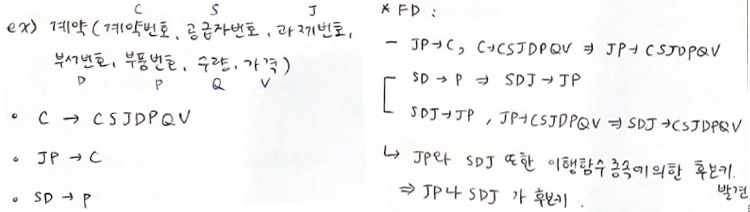 C S J
ex) 계약 (계약번호, 공급자번호, 과제번호,
부서번호, 부품번호, 수량, 가격)
D P Q V
• C → CSJDPQV
• JP → C
• SD → P
* FD :
- JP→C, C→CSJDPQV ⇒ JP→CSJDPQV
SD → P ⇒ SDJ→JP
SDJ→JP, JP→CSJDPQV ⇒ SDJ→CSJDPQV
↳ JP와 SDJ 또한 이행함수종속에 의한 후보키.
⇒ JP나 SDJ가 후보키. 발견